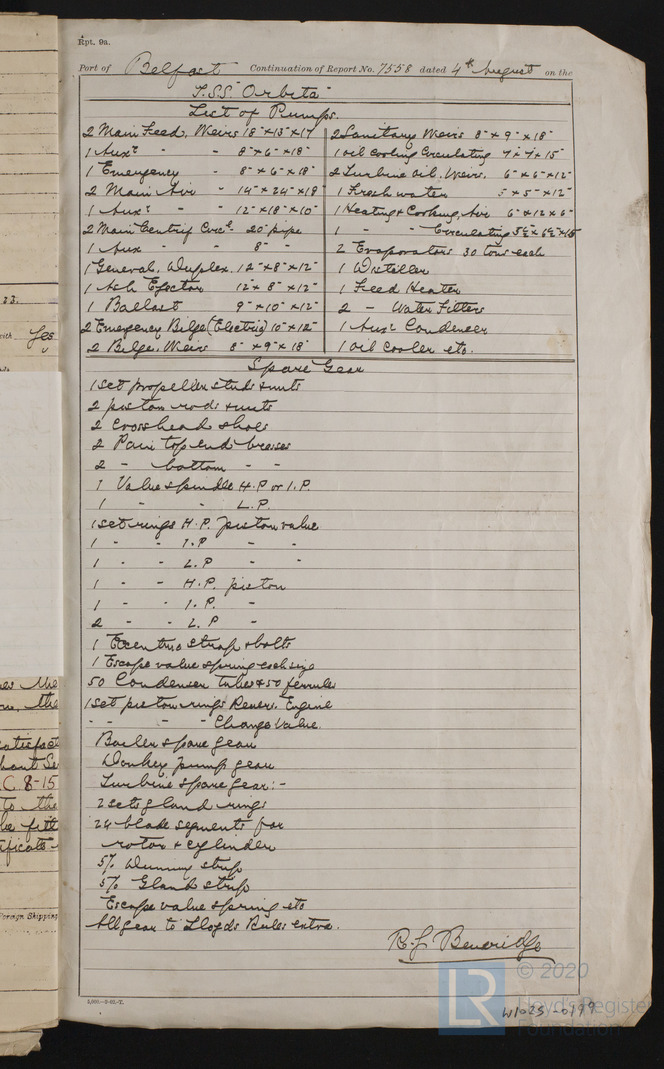 Rpt. 9a.
Port of Belfast Continuation of Report No. 7558 dated 4th August on the
T.S.S. "Orbita"
List of Pumps.
2 Main Feed, Weirs 18" × 13" × 17
1 Auxr " - 8" × 6" × 18"
1 Emergency - 8" × 6" × 18"
2 Main Air - 14" × 24" × 18"
1 Auxr - 12" × 18" × 10"
2 Main Centrif Circg. 20" pipe
1 Aux - - 8" -
1 General, Duplex. 12" × 8" × 12"
1 Ash Ejector 12 × 8" × 12"
1 Ballast 9" × 10" × 12"
2 Emergency Bilge (Electric) 10" × 12"
2 Bilge, Weirs 8" × 9" × 18"
2 Sanitary Weirs 8" × 9" × 18"
1 oil cooling Circulating 7 × 7 × 15"
2 Turbine oil. Weirs. 6" × 6" × 12"
1 Fresh water 5" × 5" × 12"
1 Heating & Cooking, Air 6" × 12 × 6"
1 - - Circulating 5½" × 6½" × 15
2 Evaporators 30 tons each
1 Distiller
1 Feed Heater
2 - Water Filters
1 Auxr Condenser
1 oil cooler etc.
Spare Gear
1 set propeller studs & nuts
2 piston rods & nuts
2 Crosshead shoes
2 Pair top end brasses
2 - bottom - -
1 Valve spindle H.P or I.P.
1 - - L.P.
1 set rings H.P. piston valve
1 - - I.P - -
1 - - L.P - -
1 - - H.P. piston
1 - - I.P. -
2 - - L.P -
1 Eccentric strap & bolts
1 Escape valve spring each size
50 Condenser tubes & 50 ferrules
1 set piston rings Revers. Engine
- - - - Change Valve.
Boiler spare gear
Donkey pump gear
Turbine spare gear:-
2 sets gland rings
24 blade segments for
rotor & cylinder
5% Dummy strip
5% Gland strip
Escape valve spring etc
All gear to Lloyds Rules extra.
R. J. Beveridge
2,000.—2-02.—T.
LR
© 2020
Lloyd's Register
Foundation
W1025-0199
23.
with Yes
the
the
satisfact
C. 8-15
to the
be fitt
Foreign Shipping